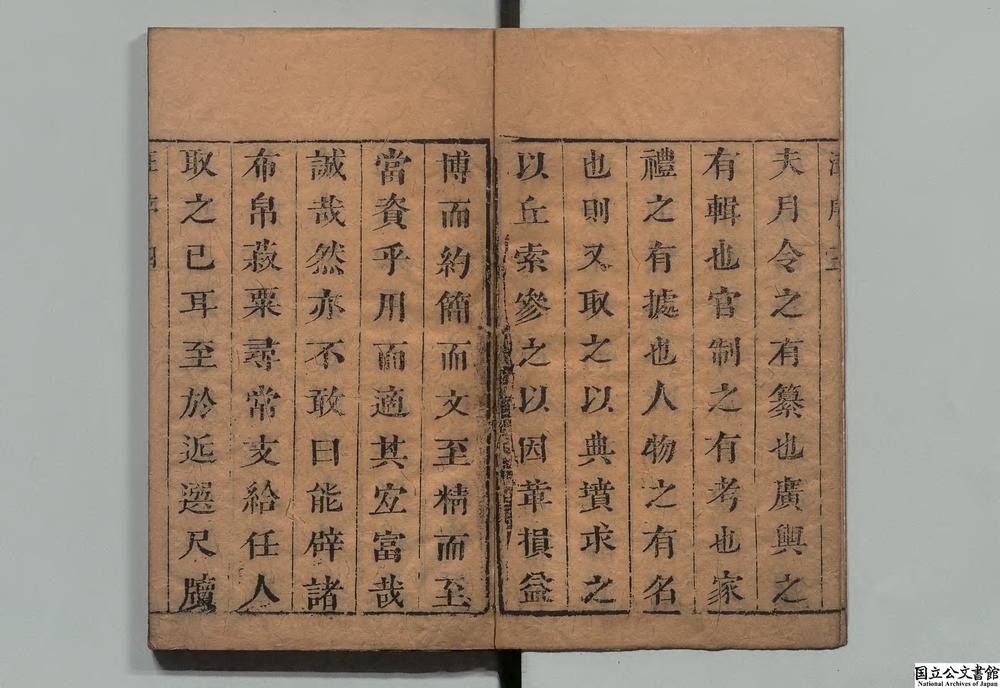 夫月令之有纂也廣輿之
有輯也官制之有考也家
禮之有據也人物之有名
也則又取之以典墳求之
以丘索參之以因革損益
博而約簡而文至精而至
當資乎用而適其宜富哉
誠哉然亦不敢曰能辟諸
布帛菽粟尋常支給任人
取之已耳至於近選尺牘
国立公文書館
National Archives of Japan